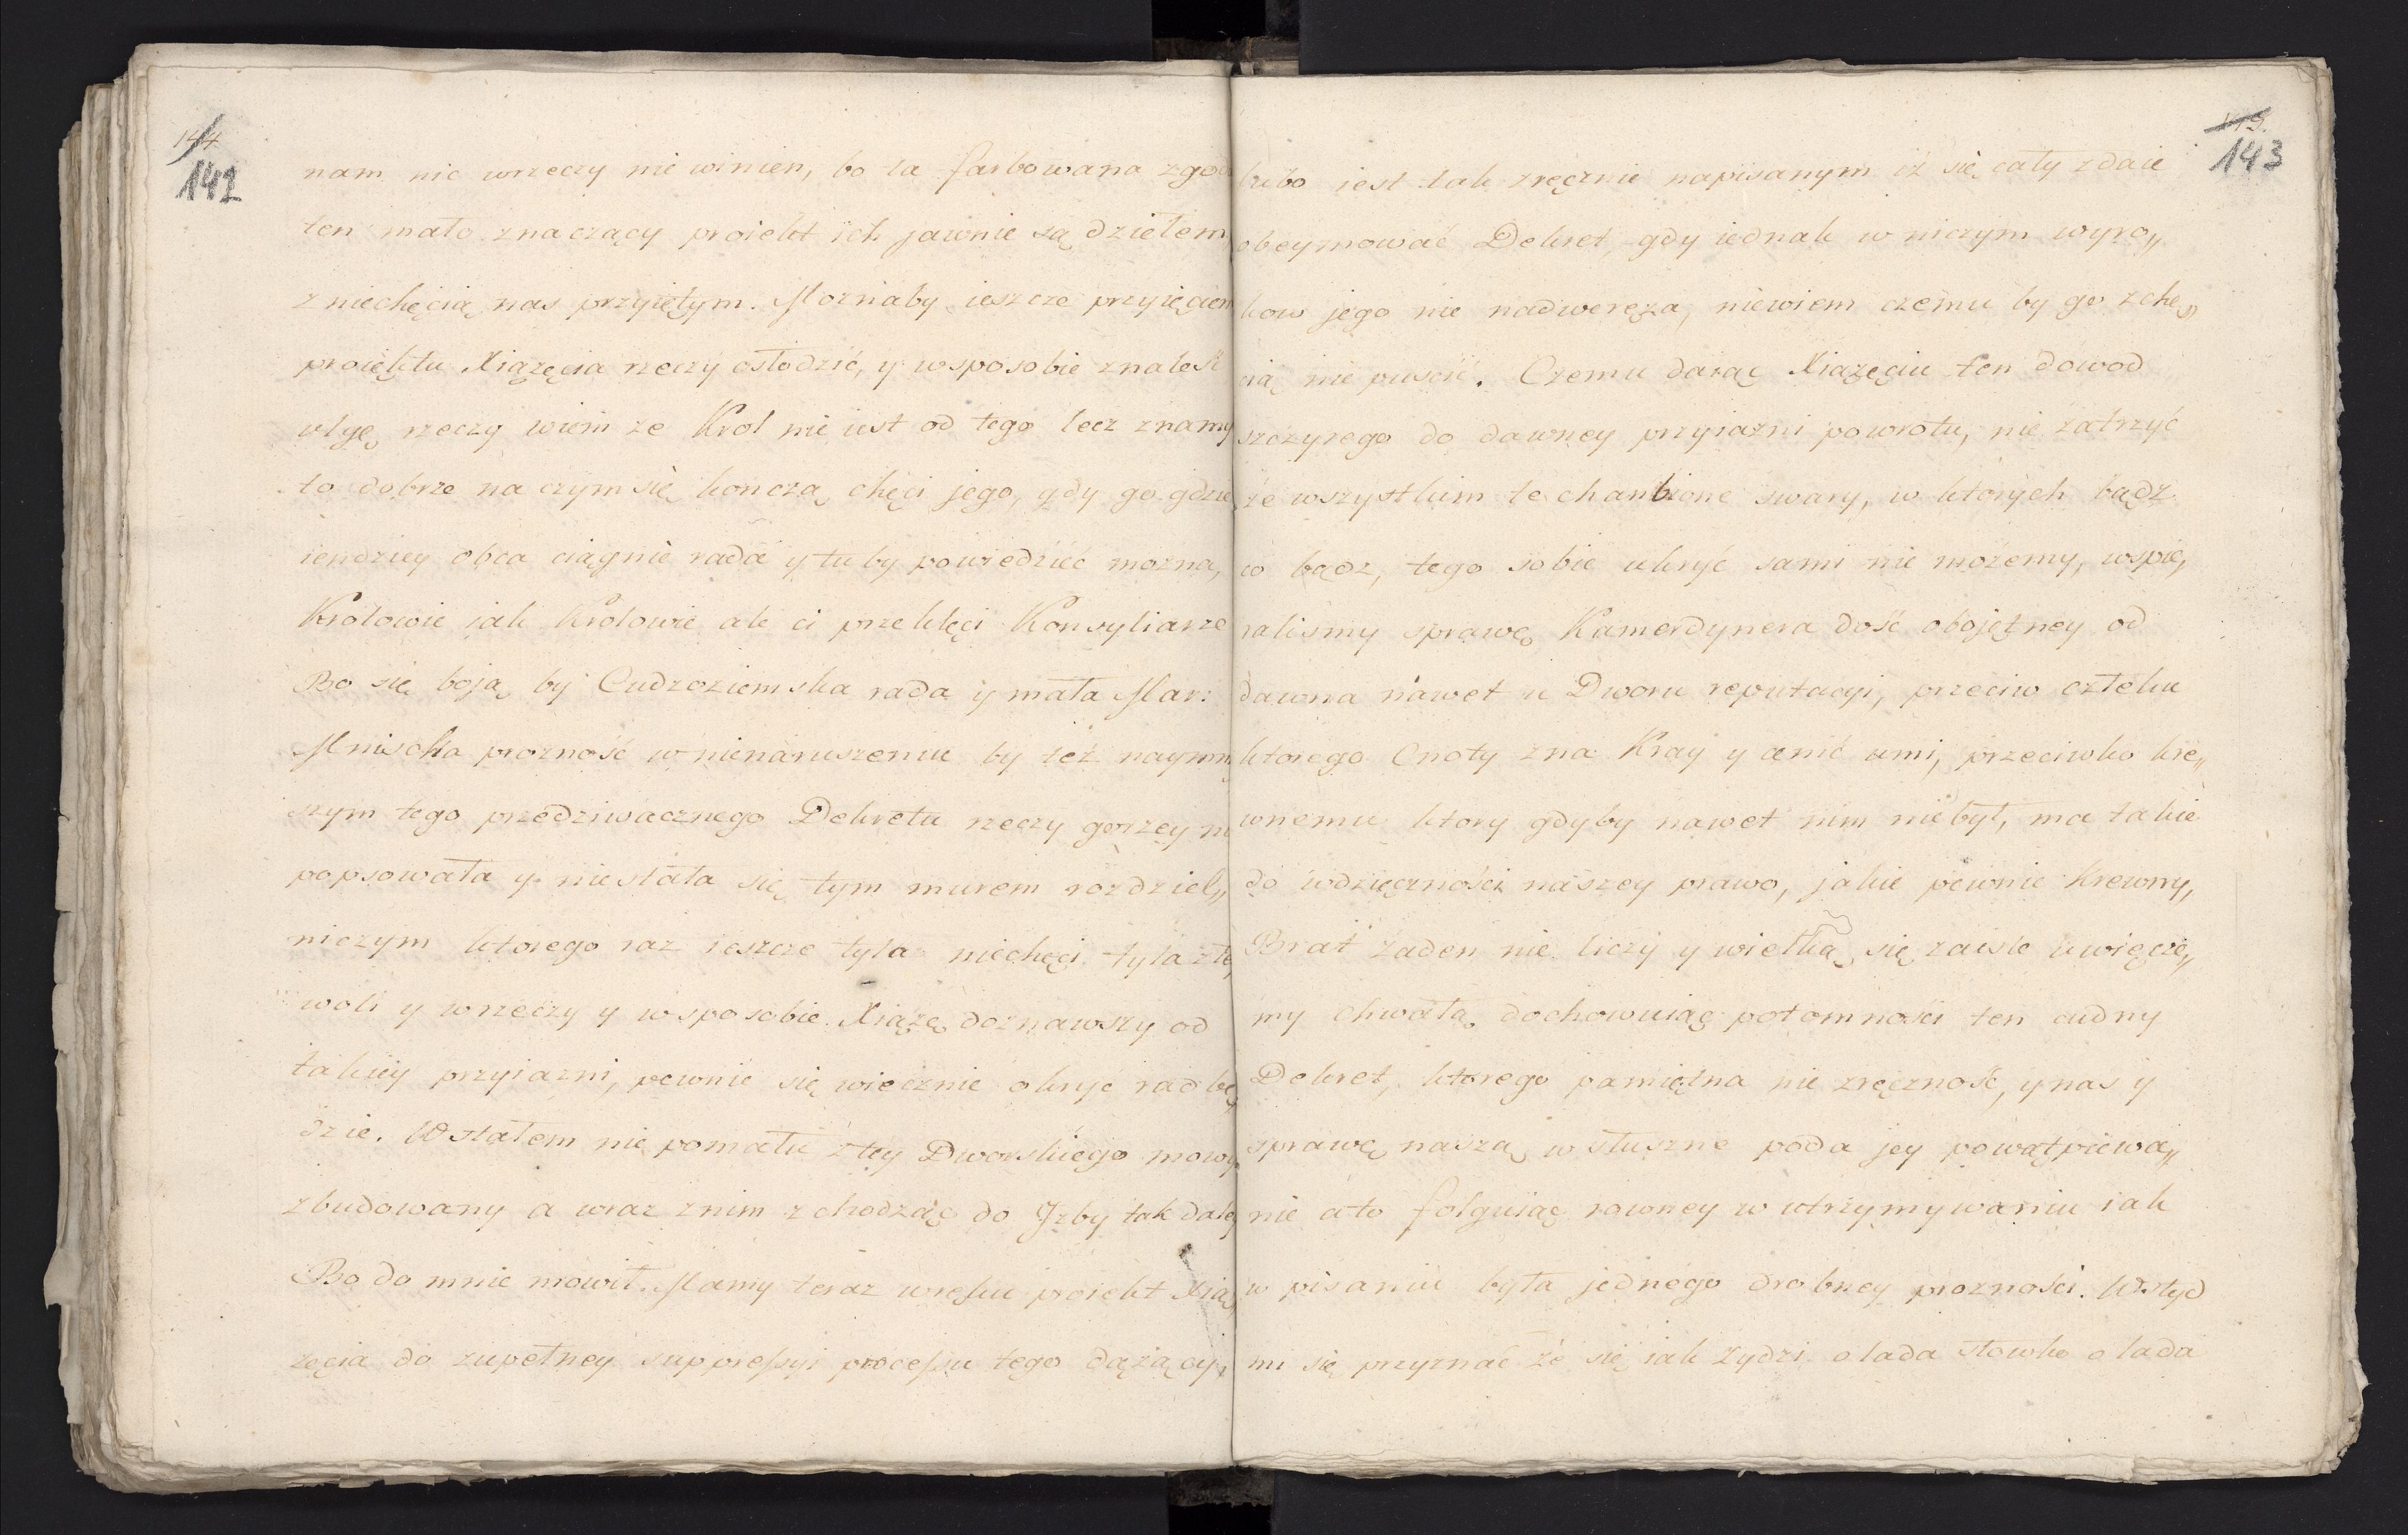 144
142
nam nic wrzeczy nie winien, bo ta farbowana zgod
ten mało znaczący proiekt ich jawnie są dziełem
z niechęcią nas przyiętym. Moznaby ieszcze przyięciem
proiektu Xiązęcia rzeczy osłodzić, y wsposobie znalesć
ulgę rzeczy wiem ze Krol nie iest od tego lecz znamy
to dobrze na czym się konczą chęci jego, gdy go gdzie
iendziey obca ciągnie rada y tu by powiedzieć mozna,
Krolowie iak Krolowie ale ci przeklęci Konsyliarze
Bo się boją by Cudzoziemska rada y mała Mar:
Mniscka prozność w nienaruszeniu by też naymn
szym tego przedziwacznego Dekretu rzeczy gorzey ni
popsowała y niestała się tym murem rozdziel„
niczym ktorego raz ieszcze tyla niechęci tyla złe
woli y wrzeczy y wsposobie. Xiąze doznawszy od
takiey przyiazni, pewnie się wiecznie okryć rad bę„
dzie. Wstałem nie pomału z tey Dworskiego mowy
zbudowany a wraz znim zchodząc do Jzby tak daley
Bo do mnie mowił. Mamy teraz wręku proiekt Xią„
zęcia do zupełney suppressyi processu tego dążący,
119.
143
lubo iest tak zręcznie napisanym iż się cały zdaie
obeymować Dekret, gdy iednak w niczym wyro„
kow jego nie nadweręza, niewiem czemu by go zchę„
cią nie puscić. Czemu daiąc Xiązęciu ten dowod
szczyrego do dawney przyiazni powrotu, nie zatrzyć
ze wszystkim te chanbione swary, w ktorych bądz
co bądz, tego sobie ukryć sami nie możemy, wspie„
ralismy sprawę Kamerdynera dość obojętney od
dawna nawet u Dworu reputacyi, przeciw człeku
ktorego Cnoty zna Kray y cenić umi, przeciwko kre„
wnemu ktory gdyby nawet nim niebył, ma takie
do wdzięczności naszey prawo, jakie pewnie Krewny,
Brat żaden nie liczy y wielką się zaiste uwięcze„
my chwałą dochowuiąc potomności ten cudny
Dekret, ktorego pamiętna nie zręczność, y nas y
sprawę naszą w słuszne poda jey powątpiewa„
nie ato folguiąc rowney w utrzymywaniu iak
w pisaniu była jednego drobney prozności. Wstyd
mi się przyznać że się iak Zydzi o lada słowko o lada